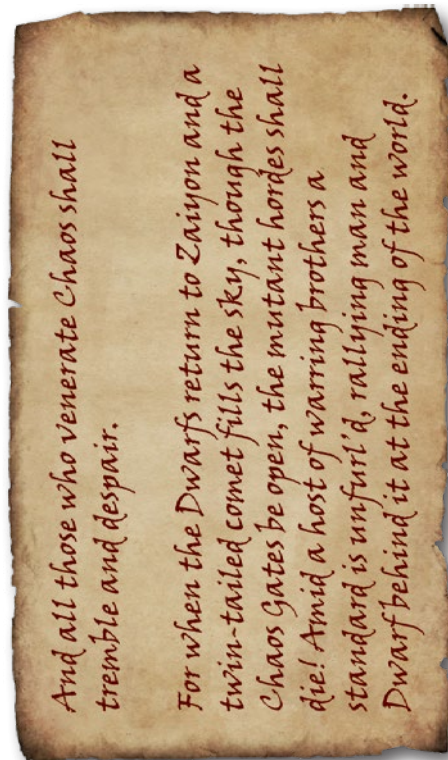 And all those who venerate Chaos shall
tremble and despair.
For when the Dwarfs return to Zaiyon and a
twin-tailed comet fills the sky, though the
Chaos Gates be open, the mutant hordes shall
die! Amid a host of warring brothers a
standard is unfurl'd, rallying man and
Dwarf behind it at the ending of the world.